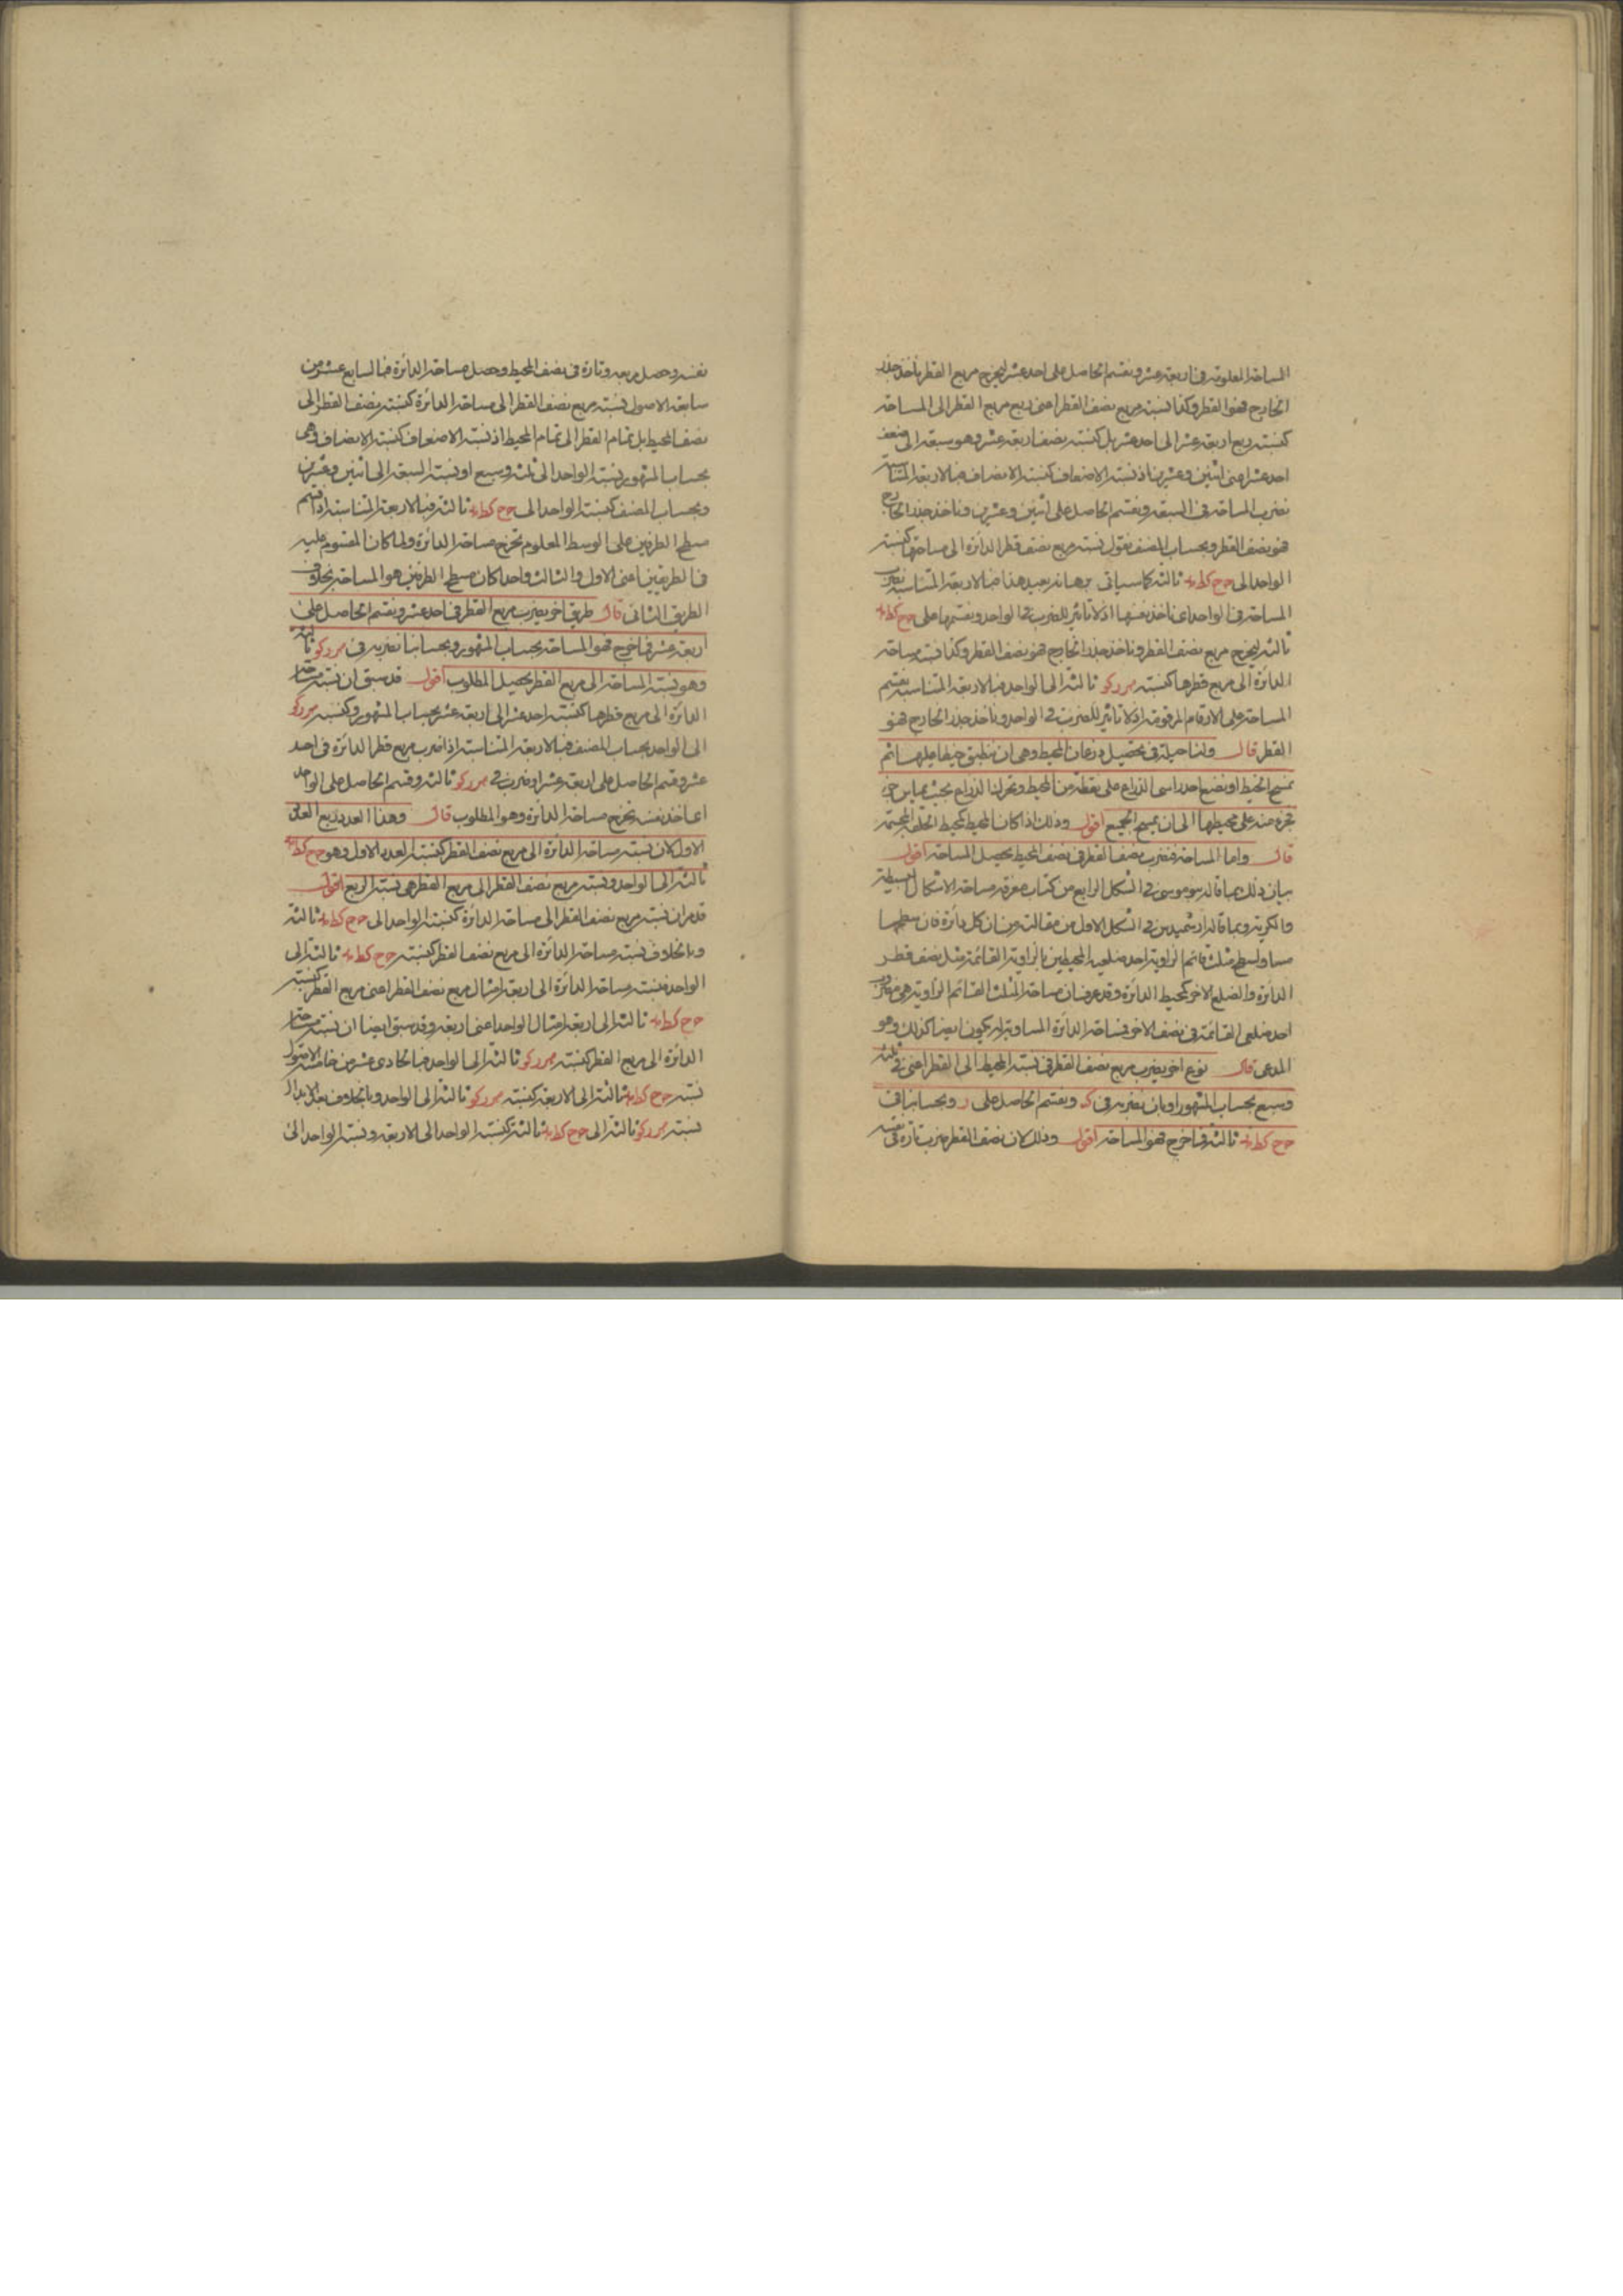 المساحة المعلومة فى اربعة عشر ونقسم الحاصل على احد عشر ليخرج مربع القطر ناخذ جذر
الخارج فهو القطر وكذا نسبة مربع نصف القطر اعنى ربع مربع القطر الى المساحة
كنسبة ربع اربعة عشر الى احد عشر بل كنسبة نصف اربعة عشر وهو سبعة الى ضعف
احد عشر اعنى اثنين وعشرين اذ نسبة الاضعاف كنسبة الانصاف فبالاربعة المتناسبة
نضرب المساحة فى السبعة ونقسم الحاصل على اثنين وعشرين وناخذ جذر الخارج
فهو نصف القطر وبحساب المصنف نقول نسبة مربع نصف قطر الدائرة الى مساحتها كنسبة
الواحد الى ثالثة كما سياتى برهانه بعيد هذا فبالاربعة المتناسبة نضرب
المساحة فى الواحد اى ناخذ نفسها اذ لا تاثير للضرب فى الواحد ونقسمها على
ثالثة ليخرج مربع نصف القطر وناخذ جذر الخارج فهو نصف القطر وكذا نسبة مساحة
الدائرة الى مربع قطرها كنسبة ثالثة الى الواحد فبالاربعة المتناسبة نقسم
المساحة على الارقام المرقومة اذ لا تاثير للضرب فى الواحد وناخذ جذر الخارج فهو
القطر قال ولنا حيلة فى تحصيل ذرعان المحيط وهى ان نطبق خيطا عليها ثم
نمسح الخيط او نضع احد راسى الذراع على نقطة من المحيط ونحرك الذراع بحيث يماس جزء
جزء منه على محيطها الى ان يمسح الجميع اقول وذلك اذا كان المحيط كمحيط الحلقة المجسمة
قال واما المساحة فنضرب نصف القطر فى نصف المحيط يحصل المساحة اقول
بيان ذلك بما قاله بنو موسى فى الشكل الرابع من كتاب معرفة مساحة الاشكال البسيطة
والكرية وبما قاله ارشميدس فى الشكل الاول من مقالته من ان كل دائرة فان سطحها
مساو لسطح مثلث قائم الزاوية احد ضلعيه المحيطين بالزاوية القائمة مثل نصف قطر
الدائرة والضلع الاخر كمحيط الدائرة وقد عرف ان مساحة المثلث القائم الزاوية هى مضروب
احد ضلعى القائمة فى نصف الاخر فمساحة الدائرة المساوية له يكون ايضا كذلك وهو
المدعى قال نوع اخر نضرب مربع نصف القطر فى نسبة المحيط الى القطر اعنى فى ثلثة
وسبع بحساب المشهور او بان نضربه فى ونقسم الحاصل على ز وبحسابنا فى
ثالثة فما خرج فهو المساحة اقول وذلك لان نصف القطر ضرب تارة فى نفسه
نفسه وحصل مربعه وتارة فى نصف المحيط وحصل مساحة الدائرة فبالسابع عشر من
سابعة الاصول نسبة مربع نصف القطر الى مساحة الدائرة كنسبة نصف القطر الى
نصف المحيط بل تمام القطر الى تمام المحيط اذ نسبة الاضعاف كنسبة الانصاف وهى
بحساب المشهور نسبة الواحد الى ثلثة وسبع او نسبة السبعة الى اثنين وعشرين
وبحساب المصنف كنسبة الواحد الى ثالثة فبالاربعة المتناسبة اذا قسم
مسطح الطرفين على الوسط المعلوم تخرج مساحة الدائرة ولما كان المقسوم عليه
فى الطريقين اعنى الاول والثالث واحدا كان مسطح الطرفين هو المساحة بخلاف
الطريق الثانى قال طريق اخر نضرب مربع القطر فى احد عشر ونقسم الحاصل على
اربعة عشر فما خرج فهو المساحة بحساب المشهور وبحسابنا نضربه فى ثالثة
وهو نسبة المساحة الى مربع القطر يحصل المطلوب اقول قد سبق ان نسبة مساحة
الدائرة الى مربع قطرها كنسبة احد عشر الى اربعة عشر بحساب المشهور وكنسبة
الى الواحد بحساب المصنف فبالاربعة المتناسبة اذا ضرب مربع قطر الدائرة فى احد
عشر وقسم الحاصل على اربعة عشر او ضرب فى ثالثة وقسم الحاصل على الواحد
اى اخذ نفسه تخرج مساحة الدائرة وهو المطلوب قال وهذا العدد ربع العدد
الاول لان نسبة مساحة الدائرة الى مربع نصف القطر كنسبة العدد الاول وهو
ثالثة الى الواحد ونسبة مربع نصف القطر الى مربع القطر هى نسبة الربع اقول
قد مر ان نسبة مربع نصف القطر الى مساحة الدائرة كنسبة الواحد الى ثالثة
وبالخلاف نسبة مساحة الدائرة الى مربع نصف القطر كنسبة ثالثة الى
الواحد فنسبة مساحة الدائرة الى اربعة امثال مربع نصف القطر اعنى مربع القطر كنسبة
ثالثة الى اربعة امثال الواحد اعنى اربعة وقد سبق ايضا ان نسبة مساحة
الدائرة الى مربع القطر كنسبة ثالثة الى الواحد فبالحادى عشر من خامسة الاصول
نسبة ثالثة الى الاربعة كنسبة ثالثة الى الواحد وبالخلاف بعد الابدال
نسبة ثالثة الى ثالثة كنسبة الواحد الى الاربعة ونسبة الواحد الى